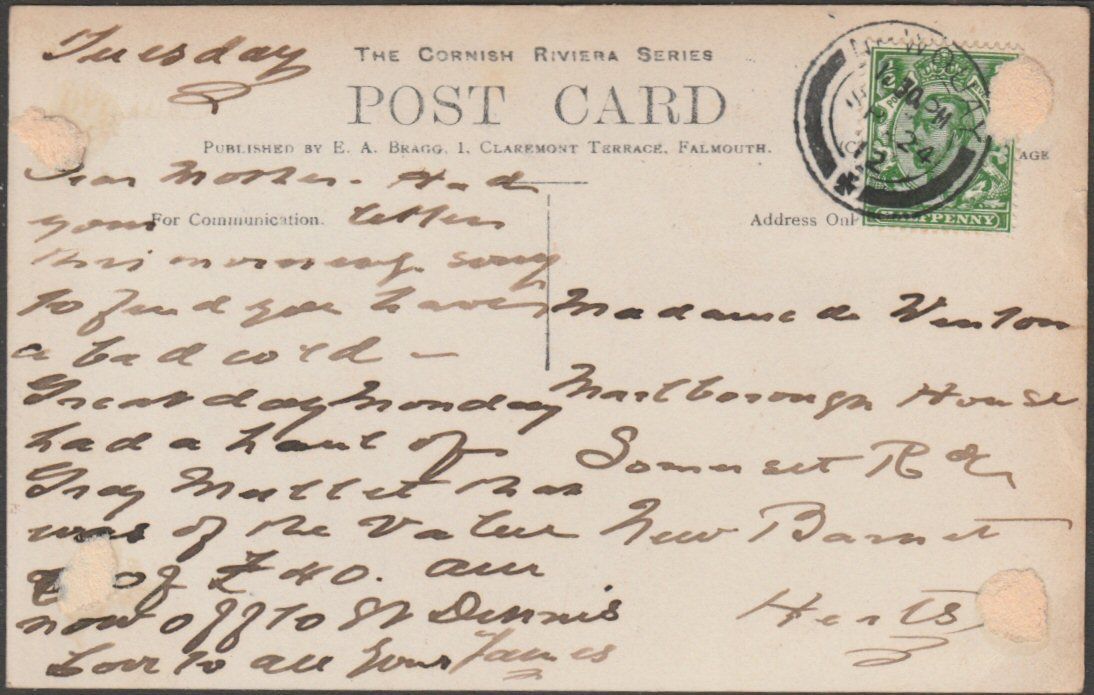 Tuesday
THE CORNISH RIVIERA SERIES
POST CARD
PUBLISHED BY E. A. BRAGG. 1, CLAREMONT TERRACE, FALMOUTH.
NEWQUAY
12.30 PM
24
12
HALFPENNY
AGE
For Communication.
Address Onl
Dear Mother. Had
your letter
this morning. sorry
to find you having
a bad cold —
Great day Monday
had a haul of
Gray Mullet that
was of the Value
of £40. am
now off to St Dennis
Love to all Your James
Madame de Winton
Marlborough House
Somerset Rd
New Barnet
Herts